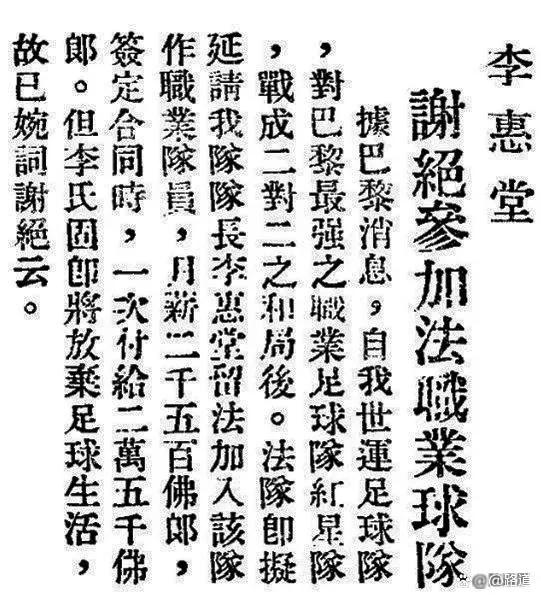 李惠堂
謝絕參加法職業球隊
據巴黎消息，自我世運足球隊
，對巴黎最强之職業足球隊紅星隊
，戰成二對二之和局後。法隊卽擬
延請我隊隊長李惠堂留法加入該隊
作職業隊員，月薪二千五百佛郎，
簽定合同時，一次付給二萬五千佛
郎。但李氏因卽將放棄足球生活，
故已婉詞謝絕云。
@路道